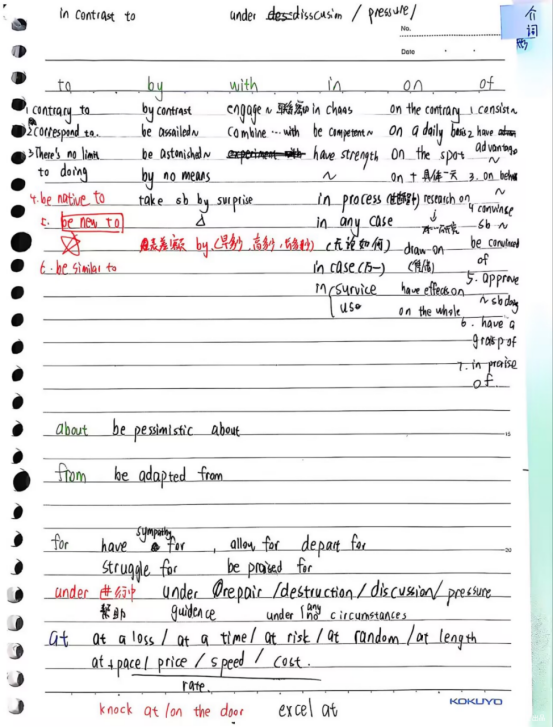 in contrast to under disscusim / pressure/
介词
No.
Date
to by with in on of
1 contrary to by contrast engage ~ in chaos on the contrary 1 consist ~
2 correspond to. be assailed ~ combine ... with be competent ~ on a daily basis 2 have
3 There's no limit be astonished ~ have strength on the spot advantage
to doing by no means ~ on + 具体一天 3. on behalf ~
4. be native to take sb by surprise in process research on 4 convinse
5. be new to in any case sb ~
by (无论如何) draw on be convinced
6. be similar to in case (万一) of
in survice have effect on 5. approve
use on the whole ~ sb doing
6. have a
grasp of
7. in praise
of
about be pessimistic about
15
from be adapted from
sympathy
for have for , allow for depart for
20
struggle for be praised for
under 进行中 under repair /destruction / discussion/ pressure
帮助 guidence under any no circumstances
at at a loss / at a time / at risk / at random / at length
at + pace / price / speed / cost.
rate.
knock at /on the door excel at
KOKUYO